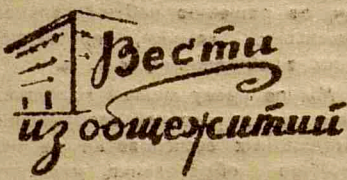 Вести
из общежитий